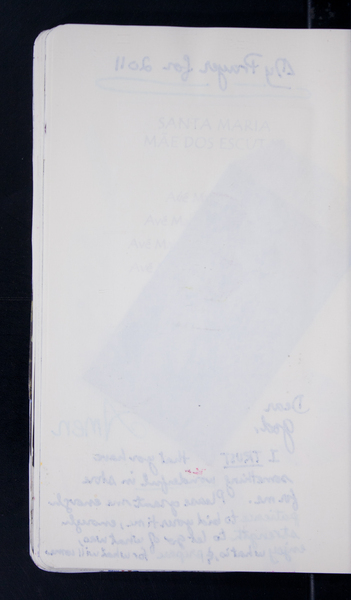 My Prayer for 2011
SANTA MARIA
MAR DOS
Dear
God,
Amen
I TRUST that you have
something wonderful in store
for me. Please grant me enough
patience to bid your time, enough
strength to let go of what was,
enjoy what is, & prepare for what will come